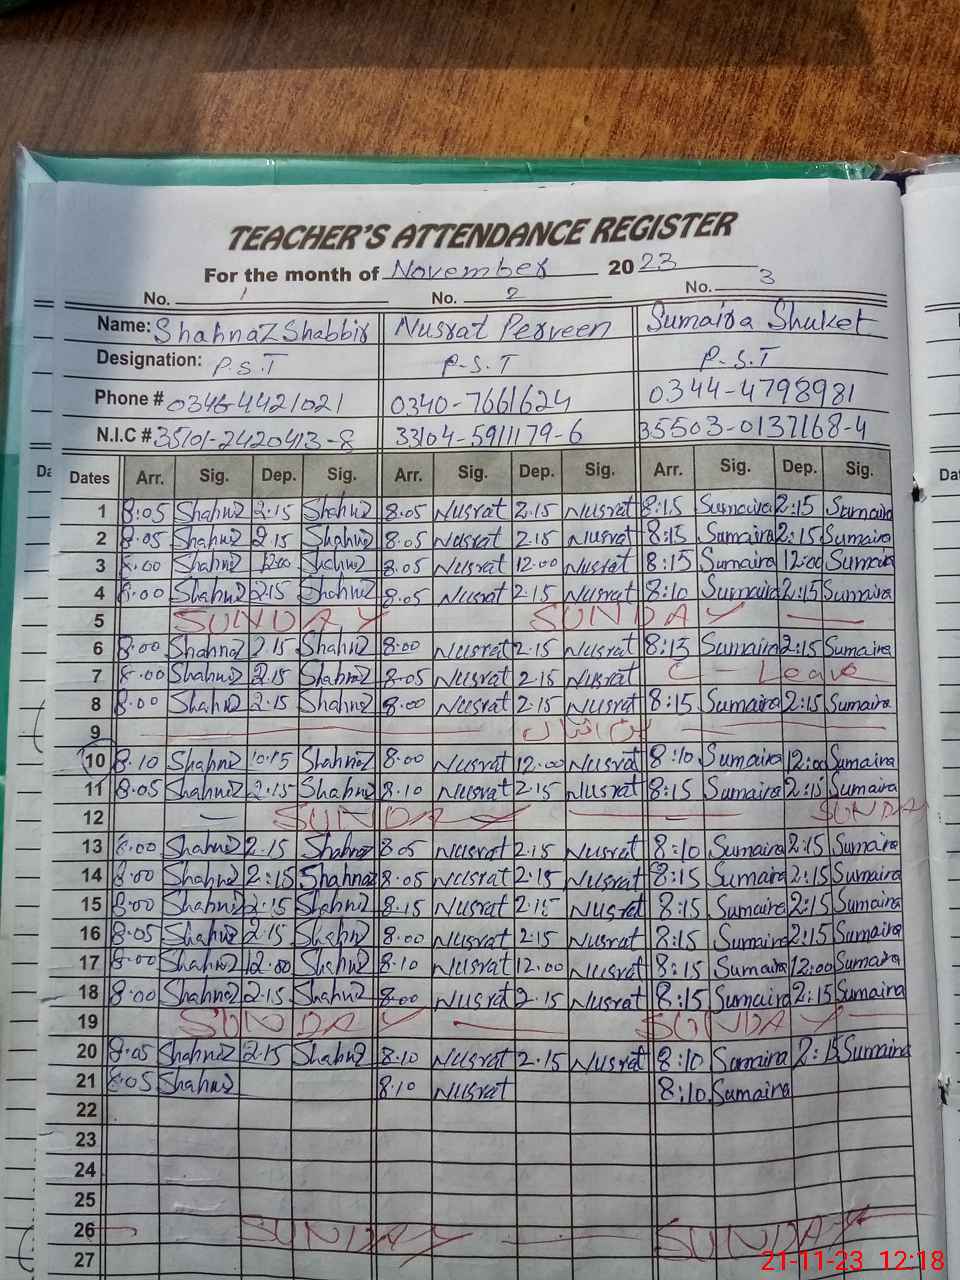 TEACHER'S ATTENDANCE REGISTER
For the month of November 2023
No. 1 No. 2 No. 3
Name: Shahnaz Shabbir Nusrat Perveen Sumaira Shuket
Designation: P.S.T P.S.T P.S.T
Phone # 0346-4421021 0340-7661624 0344-4798981
N.I.C # 35101-2420413-8 33104-5911179-6 35503-0137168-4
Dates Arr. Sig. Dep. Sig. Arr. Sig. Dep. Sig. Arr. Sig. Dep. Sig.
1 8:05 Shahnaz 2:15 Shahnaz 8.05 Nusrat 2.15 Nusrat 8:15 Sumaira 2:15 Sumaira
2 8.05 Shahnaz 2.15 Shahnaz 8.05 Nusrat 2.15 Nusrat 8:15 Sumaira 2:15 Sumaira
3 8.00 Shahnaz 12:00 Shahnaz 8.05 Nusrat 12.00 Nusrat 8:15 Sumaira 12:00 Sumaira
4 8.00 Shahnaz 2.15 Shahnaz 8.05 Nusrat 2.15 Nusrat 8:10 Sumaira 2:15 Sumaira
5 SUNDAY SUNDAY
6 8.00 Shahnaz 2.15 Shahnaz 8.00 Nusrat 2.15 Nusrat 8:15 Sumaira 2:15 Sumaira
7 8.00 Shahnaz 2.15 Shahnaz 8.05 Nusrat 2.15 Nusrat C - Leave
8 8.00 Shahnaz 2.15 Shahnaz 8.00 Nusrat 2.15 Nusrat 8:15 Sumaira 2:15 Sumaira
9
10 8.10 Shahnaz Shahnaz 8.00 Nusrat 12.00 Nusrat 8:10 Sumaira 12:00 Sumaira
11 8.05 Shahnaz 2.15 Shahnaz 8.10 Nusrat 2.15 Nusrat 8:15 Sumaira 2:15 Sumaira
12 SUNDAY SUNDA
13 8.00 Shahnaz 2.15 Shahnaz 8.05 Nusrat 2.15 Nusrat 8:10 Sumaira 2:15 Sumaira
14 8.00 Shahnaz 2:15 Shahnaz 8.05 Nusrat 2.15 Nusrat 8:15 Sumaira 2:15 Sumaira
15 8.00 Shahnaz 2.15 Shahnaz 8.15 Nusrat 2.15 Nusrat 8:15 Sumaira 2:15 Sumaira
16 8.05 Shahnaz 2.15 Shahnaz 8.00 Nusrat 2.15 Nusrat 8:15 Sumaira 2:15 Sumaira
17 8.00 Shahnaz 12.00 Shahnaz 8.10 Nusrat 12.00 Nusrat 8:15 Sumaira 12:00 Sumaira
18 8.00 Shahnaz 2.15 Shahnaz 8.00 Nusrat 2.15 Nusrat 8:15 Sumaira 2:15 Sumaira
19 SUNDAY SUNDAY
20 8.05 Shahnaz 2.15 Shahnaz 8.10 Nusrat 2.15 Nusrat 8:10 Sumaira 2:15 Sumaira
21 8.05 Shahnaz 8.10 Nusrat 8:10 Sumaira
22
23
24
25
26 SUNDAY SUNDAY
27
21-11-23 12:18